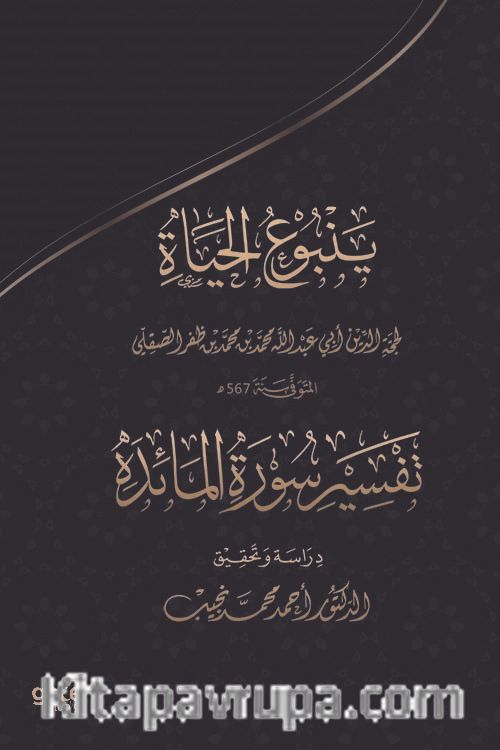 يَنْبُوعُ الحَيَاةِ
لحجة الدين أبي عبد الله محمد بن محمد بن ظفر الصقلي
المتوفى سنة 567 هـ
تَفْسِيرِ سُورَةِ المَائِدَةِ
دِرَاسَة وَتَحْقِيْق
الدكتور أحمد محمد نجيب
kitapavrupa.com